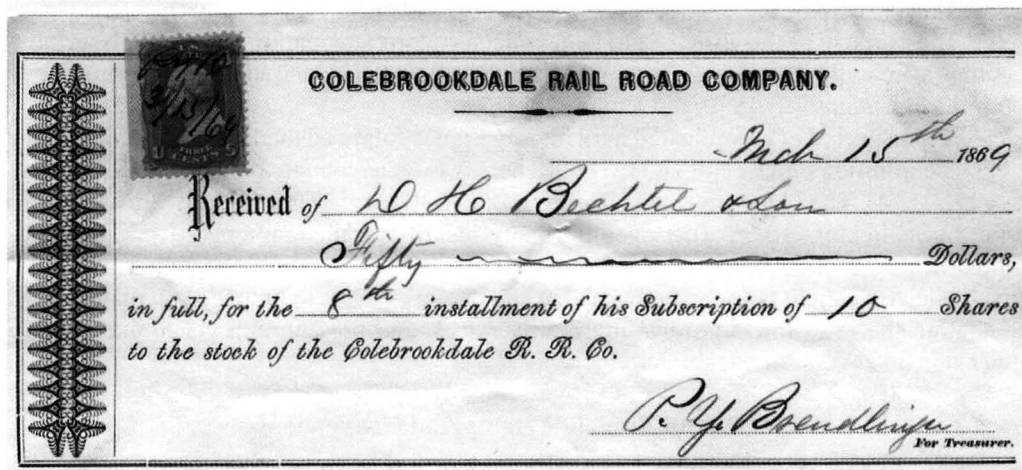 COLEBROOKDALE RAIL ROAD COMPANY.
Mch 15th 1869
Received of D H Bechtel & Son
Fifty Dollars,
in full, for the 8th installment of his Subscription of 10 Shares
to the stock of the Colebrookdale R. R. Co.
P. Y. Brendlinger
For Treasurer.
3/15/69
U THREE CENTS S